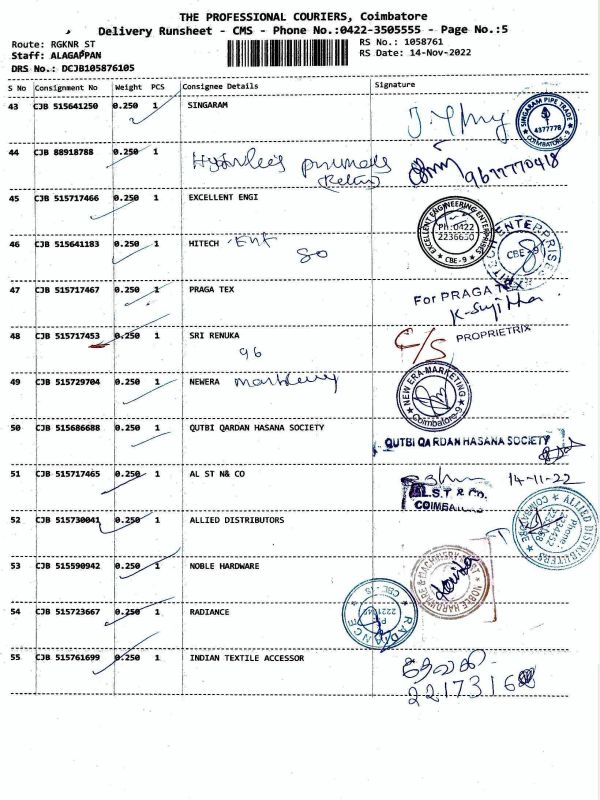 THE PROFESSIONAL COURIERS, Coimbatore
Delivery Runsheet - CMS - Phone No.:0422-3505555 - Page No.:5
Route: RGKNR ST
Staff: ALAGAPPAN
DRS No.: DCJB105876105
RS No.: 1058761
RS Date: 14-Nov-2022
S No Consignment No Weight PCS Consignee Details Signature
43 CJB 515641250 0.250 1 SINGARAM
SINGARAM PIPE TRADE
4377778
COIMBATORE-9
44 CJB 88918788 0.250 1
9677770418
45 CJB 515717466 0.250 1 EXCELLENT ENGI
EXCELLENT ENGINEERING ENTERPRISES
PH:0422
2236650
CBE-9
46 CJB 515641183 0.250 1 HITECH Ent
so
HITECH ENTERPRISES
CBE-9
47 CJB 515717467 0.250 1 PRAGA TEX
For PRAGA TEX
K-Sujitha
PROPRIETRIX
48 CJB 515717453 0.250 1 SRI RENUKA
96
C/S
49 CJB 515729704 0.250 1 NEWERA
NEW ERA MARKETING
Coimbatore-9
50 CJB 515686688 0.250 1 QUTBI QARDAN HASANA SOCIETY
QUTBI QARDAN HASANA SOCIETY
51 CJB 515717465 0.250 1 AL ST N& CO
14-11-22
A.L.S.T & Co.
COIMBATORE
52 CJB 515730041 0.250 1 ALLIED DISTRIBUTORS
ALLIED DISTRIBUTERS
COIMBATORE
Phone
53 CJB 515590942 0.250 1 NOBLE HARDWARE
NOBLE HARDWARE & MACHINERY MART
54 CJB 515723667 0.250 1 RADIANCE
RADIANCE
CBE-9
55 CJB 515761699 0.250 1 INDIAN TEXTILE ACCESSOR
தேவகி